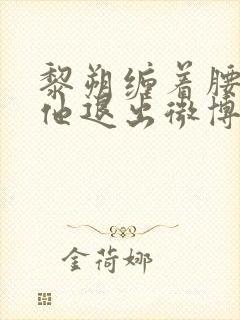 黎朔缠着腰
他退出微博
金荷娜